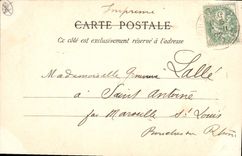 Imprimé
CARTE POSTALE
Ce côté est exclusivement réservé à l'adresse
Mademoiselle Lallé
à Saint Antoine
par Marseille St Louis
Bouches du Rhône